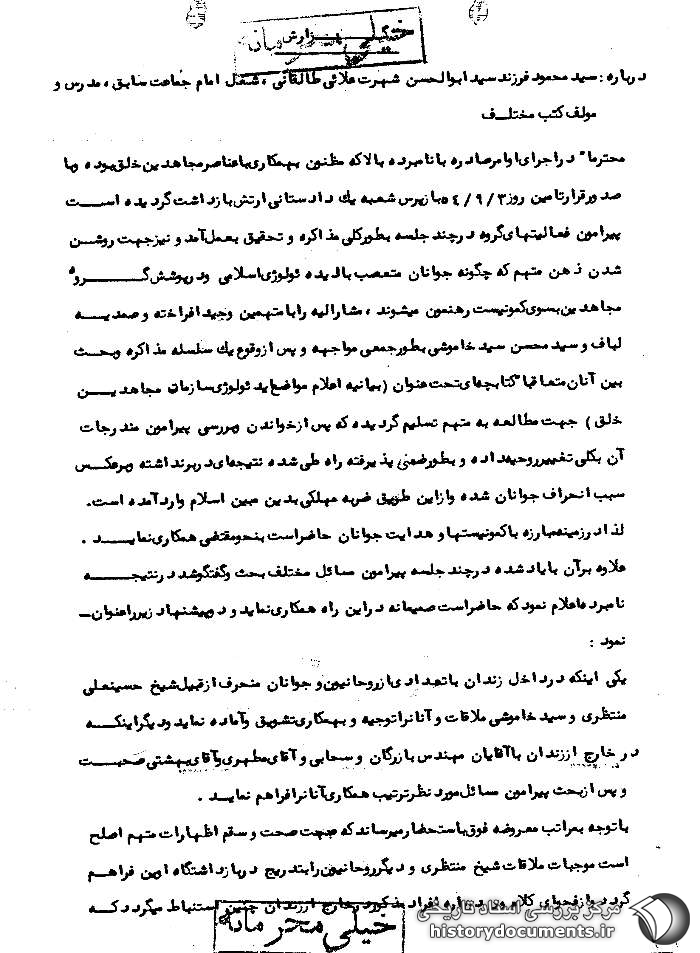 خیلی محرمانه
گزارش
درباره : سید محمود فرزند سید ابوالحسن شهرت علائی طالقانی ، شغل امام جماعت سابق ، مدرس و
مولف کتب مختلف
محترما" در اجرای اوامر صادره با نامبرده بالا که مظنون بهمکاری با عناصر مجاهدین خلق بوده و با
صدور قرار تامین روز ۵٤/۹/۳ بازپرس شعبه یك دادستانی ارتش بازداشت گردیده اســت
پیرامون فعالیتهای گروه در چند جلسه بطور کلی مذاکره و تحقیق بعمل آمد و نیز جهت روشن
شدن ذهن متهم که چگونه جوانان متعصب با ایده ئولوژی اسلامی و در پوشش گــــروه
مجاهدین بسوی کمونیست رهنمون میشوند ، مشارالیه را با متهمین وحید افراخته و صمدیــه
لباف و سید محسن سید خاموشی بطور جمعی مواجهه و پس از وقوع یك سلسله مذاکره وبحث
بین آنان متعاقبا" کتابچه‌ای تحت عنوان (بیانیه اعلام مواضع ایدئولوژی سازمان مجاهدیــن
خلق ) جهت مطالعه به متهم تسلیم گردیده که پس از خواندن وبررسی پیرامون مندرجات
آن بکلی تغییر روحیه داده و بطور ضمنی پذیرفته راه طی شده نتیجه‌ای در برنداشته وبرعکس
سبب انحراف جوانان شده و از این طریق ضربه مهلکی بدین مبین اسلام وارد آمده است.
لذا در زمینه مبارزه با کمونیستها و هدایت جوانان حاضر است بنحو مقتضی همکاری نمایــد .
علاوه بر آن با یاد شده در چند جلسه پیرامون مسائل مختلف بحث وگفتگو شد در نتیجــه
نامبرده اعلام نمود که حاضر است صمیمانه در این راه همکاری نماید و دو پیشنهاد زیر را عنوان ـ
نمود :
یکی اینکه در داخل زندان با تعدادی از روحانیون و جوانان منحرف از قبیل شیخ حسینعلی
منتظری و سید خاموشی ملاقات و آنانرا توجیه و بهمکاری تشویق وآماده نماید ودیگر اینکــه
در خارج از زندان با آقایان مهندس بازرگان و سحابی و آقای مطهری وآقای بهشتی صحبــت
و پس از بحث پیرامون مسائل مورد نظر ترتیب همکاری آنانرا فراهم نمایــد .
با توجه بمراتب معروضه فوق باستحضار میرساند که جهت صحت و سقم اظهارات متهم اصلح
است موجبات ملاقات شیخ منتظری و دیگر روحانیون را بتدریج در بازداشتگاه اوین فراهــم
گردد و از فحوای کلام وی درباره افراد مذکور در خارج از زندان چنین استنباط میگردد کــه
خیلی محرمانه
مرکز بررسی اسناد تاریخی
historydocuments.ir